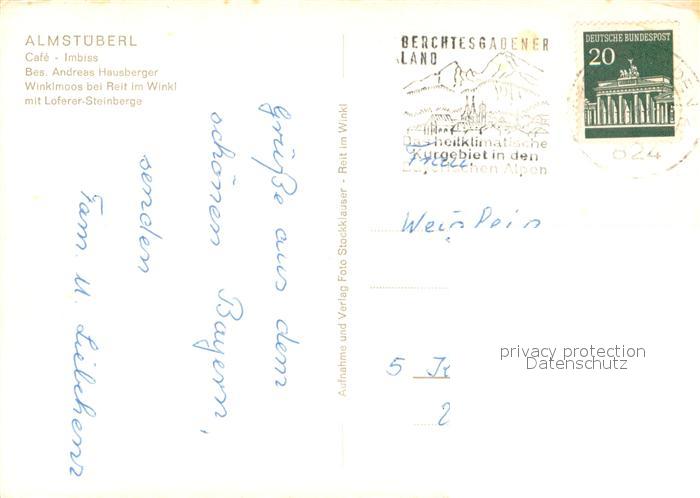 ALMSTÜBERL
Café - Imbiss
Bes. Andreas Hausberger
Winklmoos bei Reit im Winkl
mit Loferer-Steinberge
Grüße aus dem
schönen Bayern,
senden
Fam. U. Liebchenz
Aufnahme und Verlag Foto Stockklauser - Reit im Winkl
BERCHTESGADENER
LAND
Das heilklimatische
Kurgebiet in den
Bayerischen Alpen
DEUTSCHE BUNDESPOST
20
824
Frau
5 K
2
privacy protection
Datenschutz